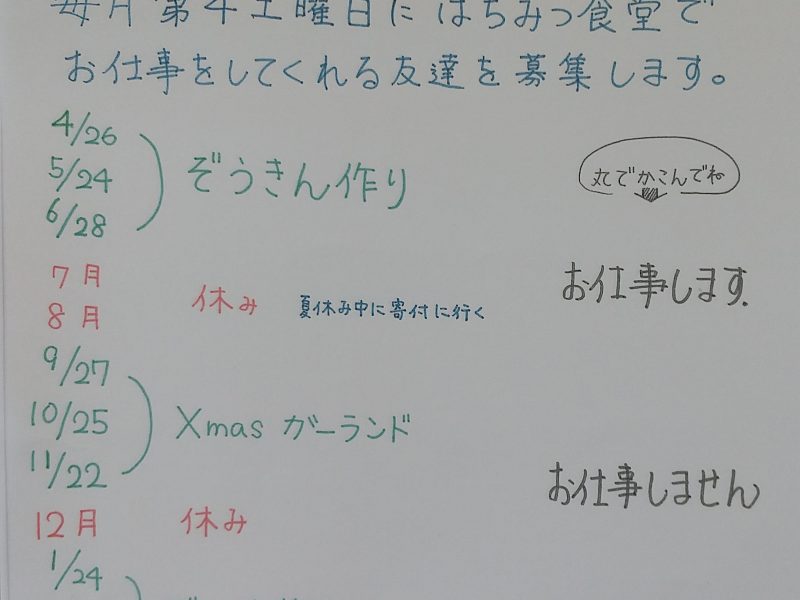 毎月第4土曜日にはちみつ食堂で
お仕事をしてくれる友達を募集します。
4/26
5/24
6/28
ぞうきん作り
丸でかこんでね
7月
8月
休み
夏休み中に寄付に行く
お仕事します.
9/27
10/25
11/22
Xmas ガーランド
お仕事しません
12月
休み
1/24